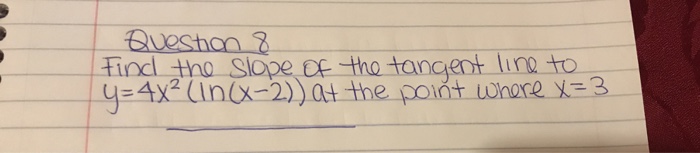 Question 8
Find the slope of the tangent line to
y=4x²(ln(x-2)) at the point where x=3